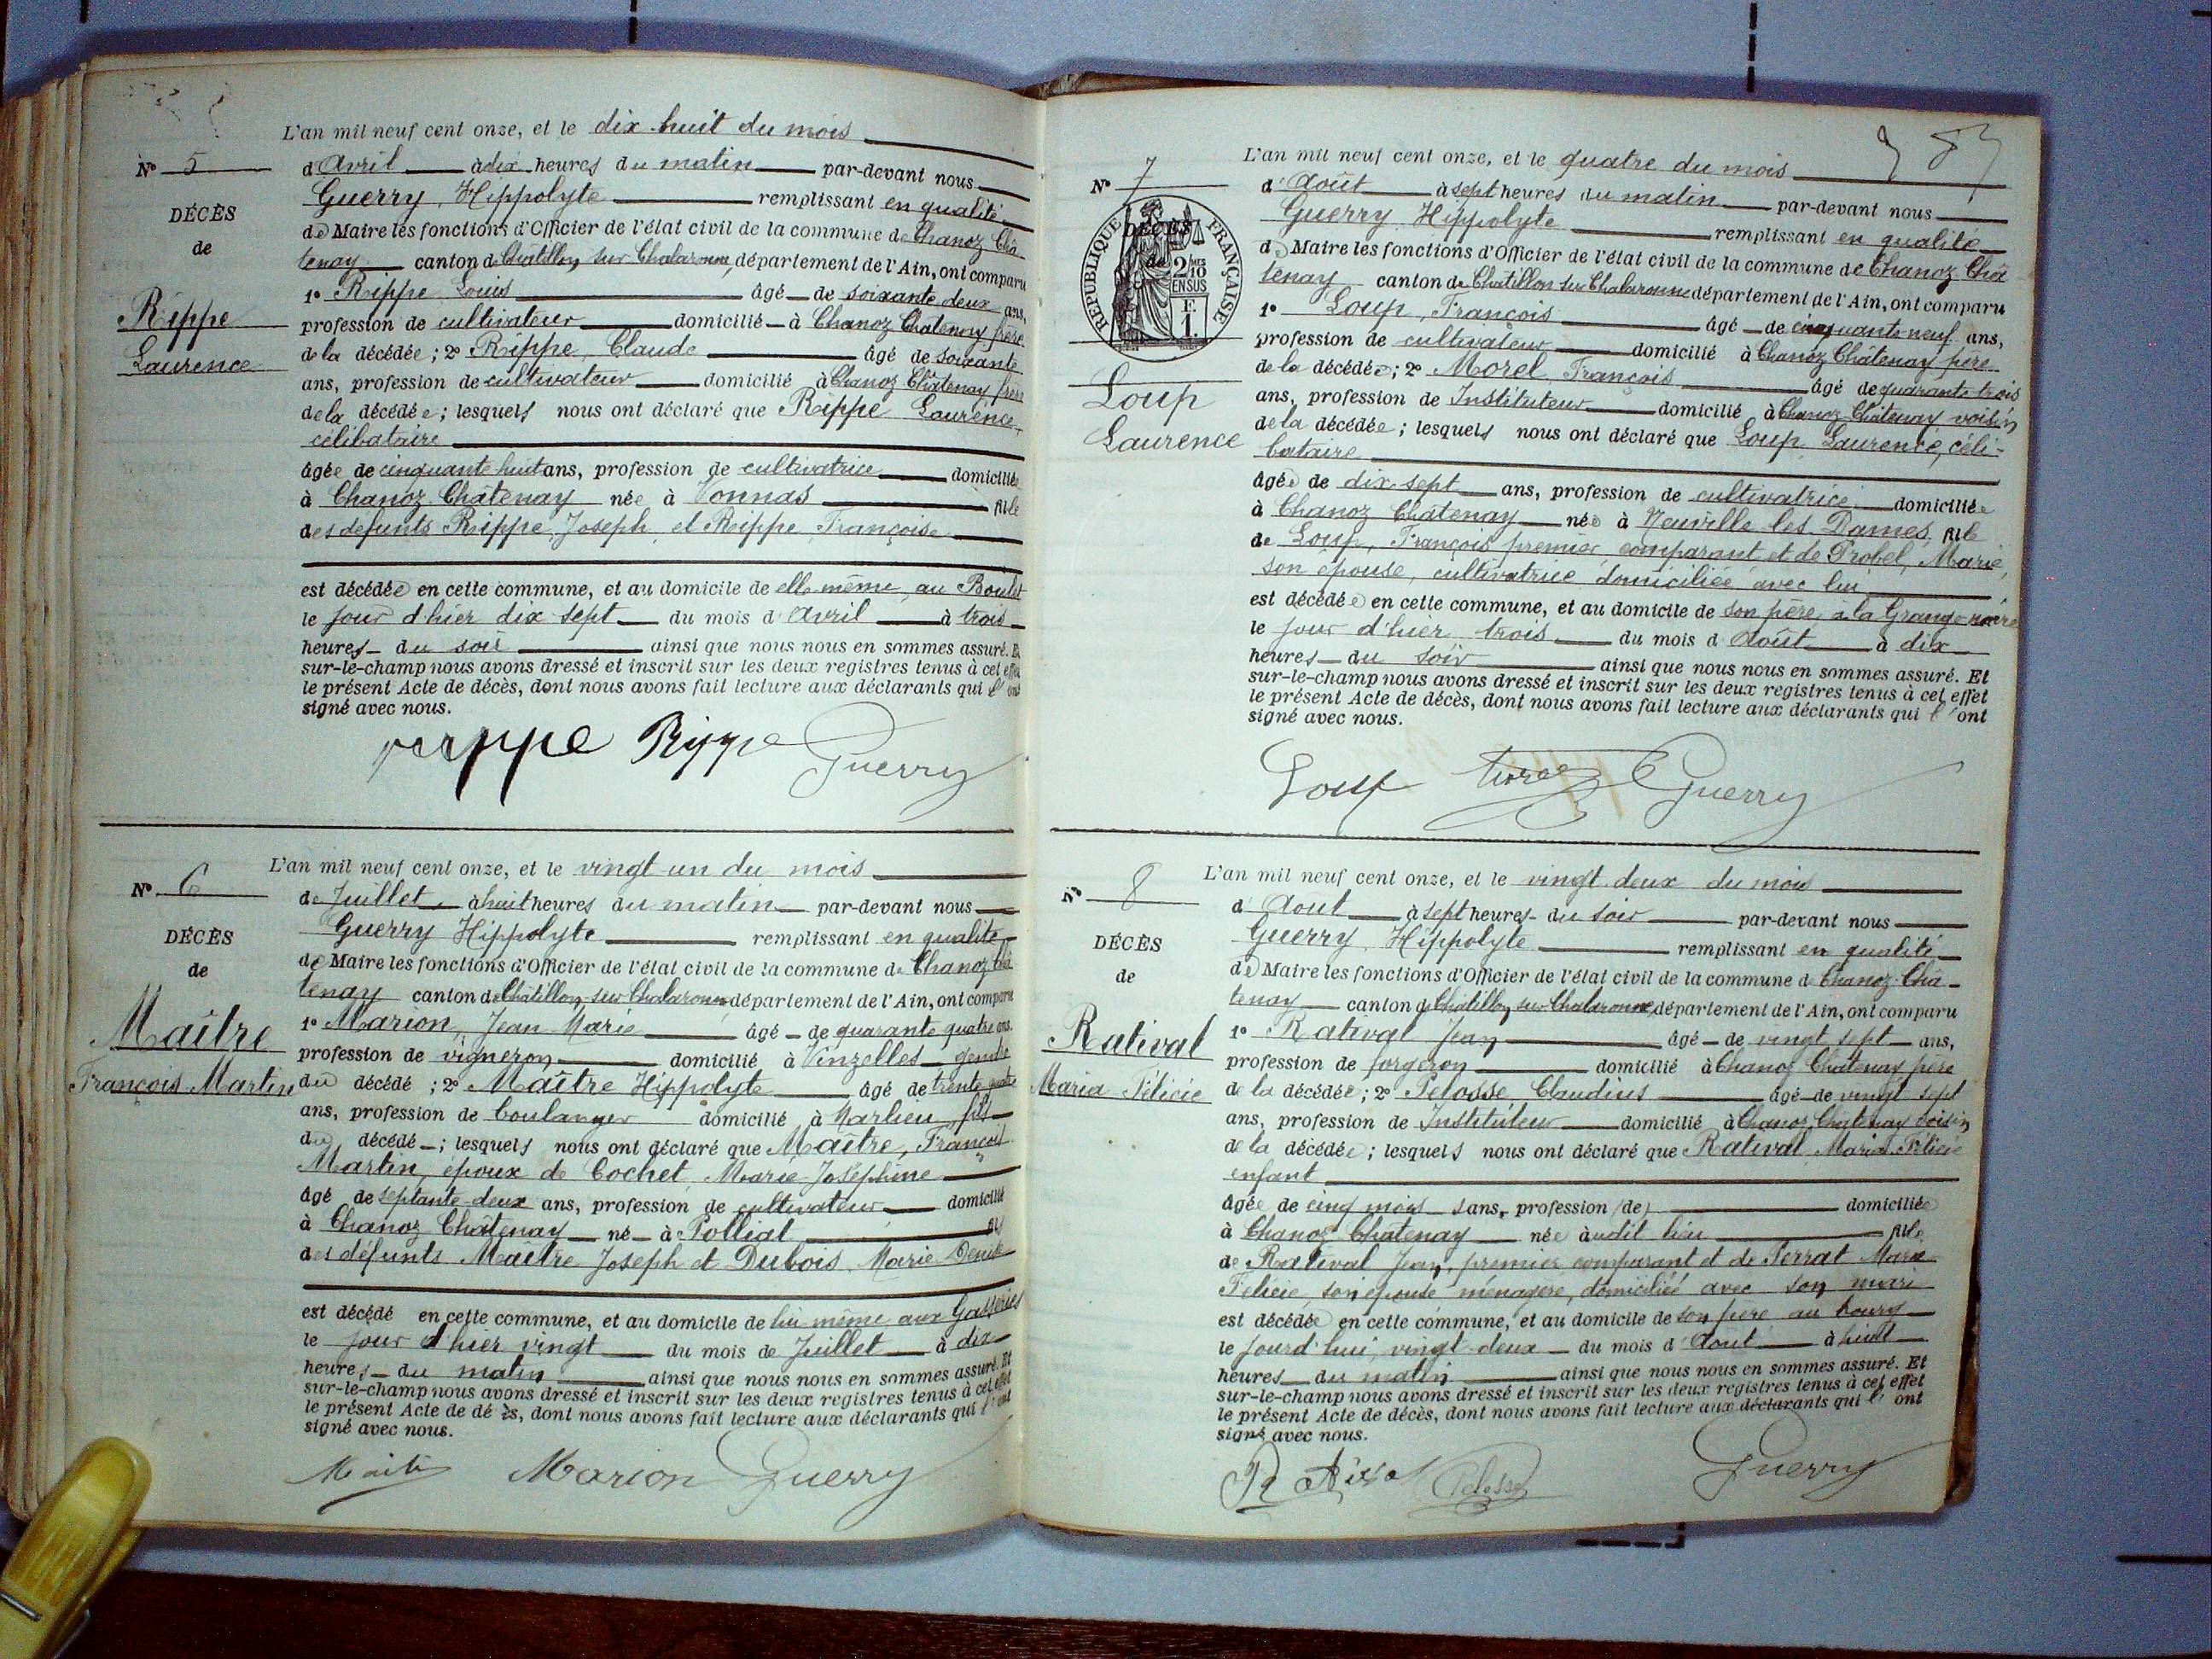 L'an mil neuf cent onze, et le dix-huit du mois
N° 5
d'Avril à dix heures du matin par-devant nous
Guerry, Hippolyte remplissant en qualité
DÉCÈS
de
de Maire les fonctions d'Officier de l'état civil de la commune de Chanoz Châ
tenay canton de Chatillon sur Chalaronne, département de l'Ain, ont comparu
1° Rippe Louis âgé de soixante deux ans,
Rippe
Laurence
profession de cultivateur domicilié à Chanoz Chatenay frère
de la décédée ; 2° Rippe, Claude âgé de soixante
ans, profession de cultivateur domicilié à Chanoz Châtenay frère
de la décédée ; lesquels nous ont déclaré que Rippe Laurence,
célibataire
âgée de cinquante huit ans, profession de cultivatrice domiciliée
à Chanoz Châtenay née à Vonnas fille
des défunts Rippe, Joseph et Rippe, Françoise
est décédée en cette commune, et au domicile de elle même, au Boulet
le jour d'hier dix sept du mois d'Avril à trois
heures du soir ainsi que nous nous en sommes assuré. Et
sur-le-champ nous avons dressé et inscrit sur les deux registres tenus à cet effet
le présent Acte de décès, dont nous avons fait lecture aux déclarants qui l'ont
signé avec nous.
rippe Rippe Guerry
L'an mil neuf cent onze, et le vingt-un du mois
N° 6
de Juillet à huit heures du matin par-devant nous
Guerry Hippolyte remplissant en qualité
DÉCÈS
de
de Maire les fonctions d'Officier de l'état civil de la commune de Chanoz Châ
tenay canton de Châtillon-sur Chalaronne département de l'Ain, ont comparu
1° Marion, Jean Marie âgé de quarante quatre ans.
Maître
François Martin
profession de vigneron domicilié à Vinzelles gendre
du décédé ; 2° Maître Hippolyte âgé de trente quatre
ans, profession de boulanger domicilié à Marlieu fils
du décédé ; lesquels nous ont déclaré que Maître, François
Martin, époux de Cochet Marie Joséphine
âgé de septante-deux ans, profession de cultivateur domicilié
à Chanoz Châtenay né à Polliat fils
des défunts Maître Joseph et Dubois Marie Denise
est décédé en cette commune, et au domicile de lui même aux Gasseries
le jour d'hier vingt du mois de Juillet à dix
heures du matin ainsi que nous nous en sommes assuré. Et
sur-le-champ nous avons dressé et inscrit sur les deux registres tenus à cet effet
le présent Acte de dé ès, dont nous avons fait lecture aux déclarants qui l'ont
signé avec nous.
Maître Marion Guerry
L'an mil neuf cent onze, et le quatre du mois
N° 7
d'Août à sept heures du matin par-devant nous
Guerry Hippolyte remplissant en qualité
DÉCÈS
de
RÉPUBLIQUE FRANÇAISE
2/10 EN SUS
F.
1.
de Maire les fonctions d'Officier de l'état civil de la commune de Chanoz Châ
tenay canton de Chatillon sur Chalaronne département de l'Ain, ont comparu
1° Loup, François âgé de cinquante neuf ans,
profession de cultivateur domicilié à Chanoz Châtenay père
de la décédée ; 2° Morel François âgé de quarante trois
Loup
Laurence
ans, profession de Instituteur domicilié à Chanoz Châtenay voisin
de la décédée ; lesquels nous ont déclaré que Loup, Laurence, céli-
bataire
âgée de dix-sept ans, profession de cultivatrice domiciliée
à Chanoz Châtenay née à Neuville les Dames, fille
de Loup, François premier comparant et de Probel, Marie,
son épouse, cultivatrice domiciliée avec lui
est décédée en cette commune, et au domicile de son père, à la Grange noire
le jour d'hier trois du mois d'Août à dix
heures du soir ainsi que nous nous en sommes assuré. Et
sur-le-champ nous avons dressé et inscrit sur les deux registres tenus à cet effet
le présent Acte de décès, dont nous avons fait lecture aux déclarants qui l'ont
signé avec nous.
Loup Guerry
L'an mil neuf cent onze, et le vingt-deux du mois
N° 8
d'Aout à sept heures du soir par-devant nous
Guerry, Hippolyte remplissant en qualité
DÉCÈS
de
de Maire les fonctions d'Officier de l'état civil de la commune de Chanoz-Châ-
tenay canton de Châtillon sur Chalaronne, département de l'Ain, ont comparu
1° Ratival Jean âgé de vingt sept ans,
Ratival
Maria Félicie
profession de forgeron domicilié à Chanoz Châtenay père
de la décédée ; 2° Pelosse, Claudius âgé de vingt sept
ans, profession de Instituteur domicilié à Chanoz Châtenay voisin
de la décédée ; lesquels nous ont déclaré que Ratival Maria Félicie
enfant
âgée de cinq mois sans profession (de) domiciliée
à Chanoz Chatenay née audit lieu fille
de Ratival Jean, premier comparant et de Perrat Marie
Félicie, son épouse ménagère, domiciliée avec son mari
est décédée en cette commune, et au domicile de son père au bourg
le jourd'hui, vingt-deux du mois d'Aout à huit
heures du matin ainsi que nous nous en sommes assuré. Et
sur-le-champ nous avons dressé et inscrit sur les deux registres tenus à cet effet
le présent Acte de décès, dont nous avons fait lecture aux déclarants qui l'ont
signé avec nous.
Ratival Pelosse Guerry